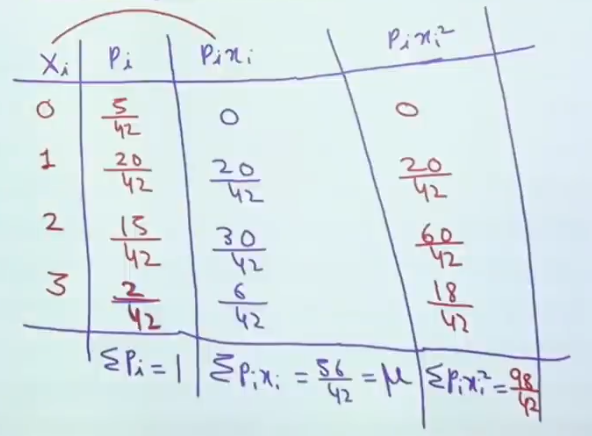 xᵢ pᵢ pᵢxᵢ pᵢxᵢ²
0 5/42 0 0
1 20/42 20/42 20/42
2 15/42 30/42 60/42
3 2/42 6/42 18/42
Σpᵢ = 1 Σpᵢxᵢ = 56/42 = μ Σpᵢxᵢ² = 98/42